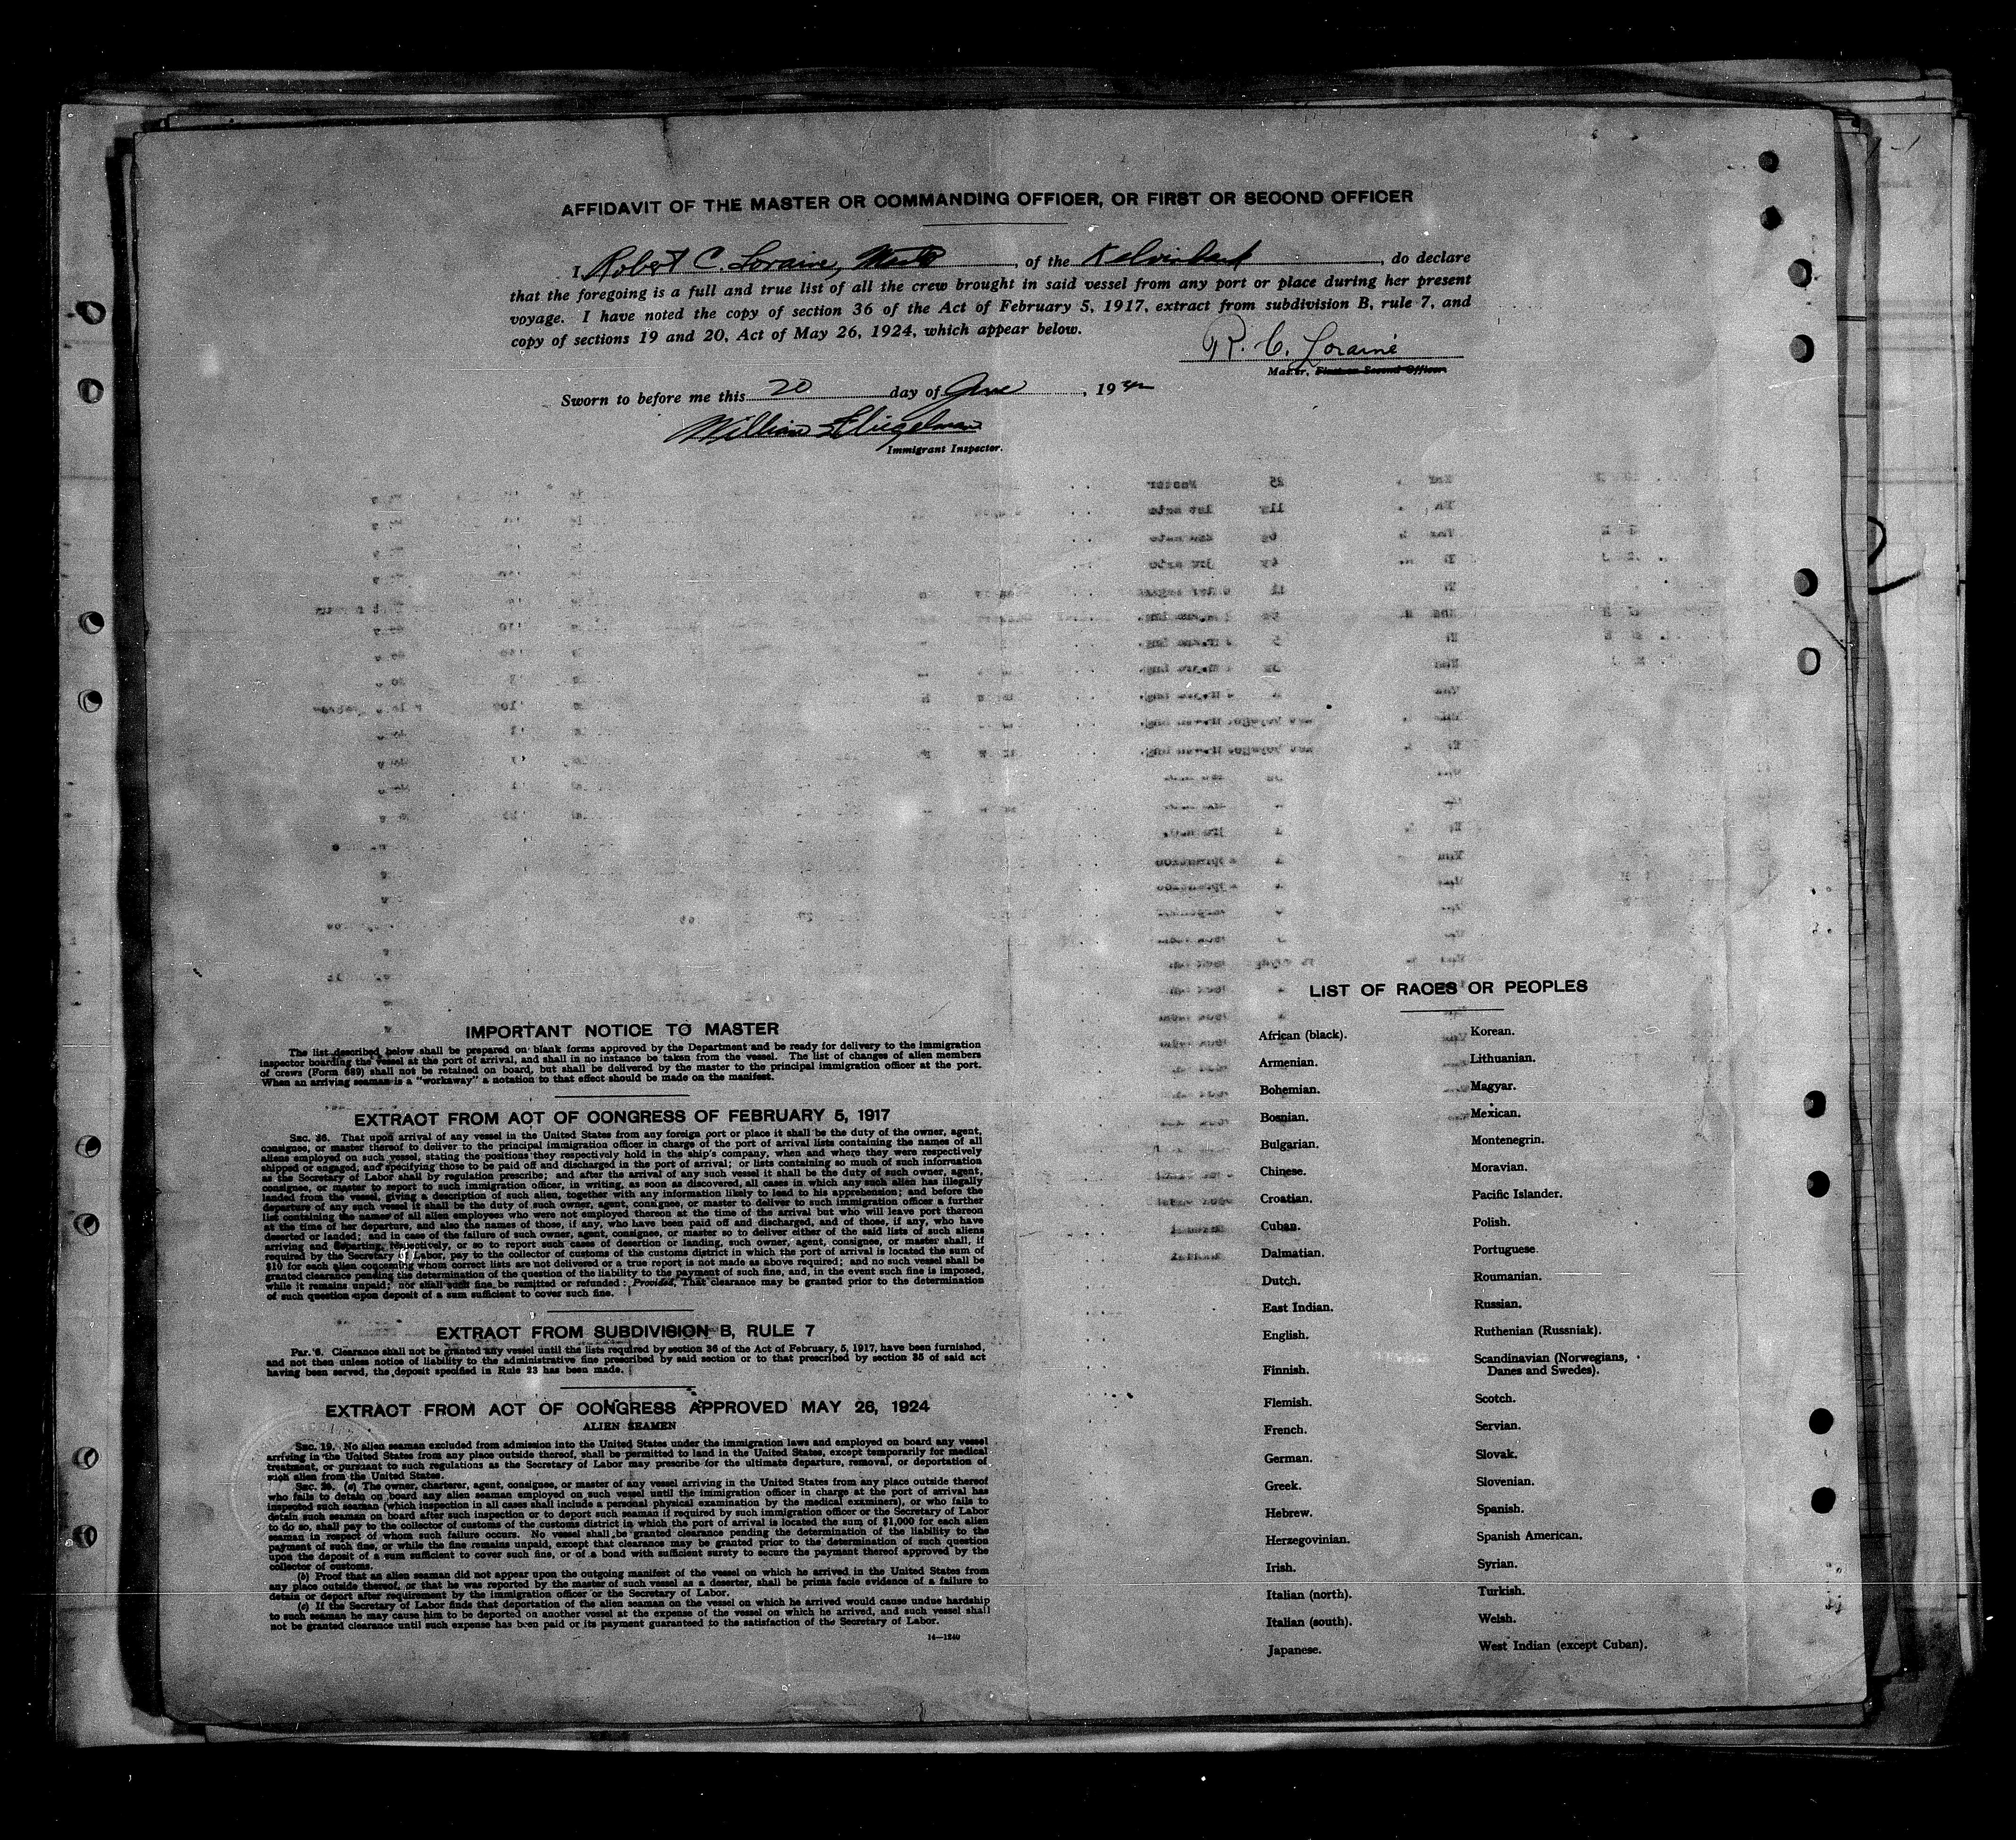 AFFIDAVIT OF THE MASTER OR COMMANDING OFFICER, OR FIRST OR SECOND OFFICER
I, Robert C. Loraine, of the Kelvinbank, do declare
that the foregoing is a full and true list of all the crew brought in said vessel from any port or place during her present
voyage. I have noted the copy of section 36 of the Act of February 5, 1917, extract from subdivision B, rule 7, and
copy of sections 19 and 20, Act of May 26, 1924, which appear below.
R. C. Loraine
Master, First or Second Officer.
Sworn to before me this 20 day of June, 19
William Fliegelman
Immigrant Inspector.
IMPORTANT NOTICE TO MASTER
The list described below shall be prepared on blank forms approved by the Department and be ready for delivery to the immigration
inspector boarding the vessel at the port of arrival, and shall in no instance be taken from the vessel. The list of changes of alien members
of crews (Form 689) shall not be retained on board, but shall be delivered by the master to the principal immigration officer at the port.
When an arriving seaman is a "workaway" a notation to that effect should be made on the manifest.
EXTRACT FROM ACT OF CONGRESS OF FEBRUARY 5, 1917
SEC. 36. That upon arrival of any vessel in the United States from any foreign port or place it shall be the duty of the owner, agent,
consignee, or master thereof to deliver to the principal immigration officer in charge of the port of arrival lists containing the names of all
aliens employed on such vessel, stating the positions they respectively hold in the ship's company, when and where they were respectively
shipped or engaged, and specifying those to be paid off and discharged in the port of arrival; or lists containing so much of such information
as the Secretary of Labor shall by regulation prescribe; and after the arrival of any such vessel it shall be the duty of such owner, agent,
consignee, or master to report to such immigration officer, in writing, as soon as discovered, all cases in which any such alien has illegally
landed from the vessel, giving a description of such alien, together with any information likely to lead to his apprehension; and before the
departure of any such vessel it shall be the duty of such owner, agent, consignee, or master to deliver to such immigration officer a further
list containing the names of all alien employees who were not employed thereon at the time of the arrival but who will leave port thereon
at the time of her departure, and also the names of those, if any, who have been paid off and discharged, and of those, if any, who have
deserted or landed; and in case of the failure of such owner, agent, consignee, or master so to deliver either of the said lists of such aliens
arriving and departing, respectively, or so to report such cases of desertion or landing, such owner, agent, consignee, or master shall, if
required by the Secretary of Labor, pay to the collector of customs of the customs district in which the port of arrival is located the sum of
$10 for each alien concerning whom correct lists are not delivered or a true report is not made as above required; and no such vessel shall be
granted clearance pending the determination of the question of the liability to the payment of such fine, and, in the event such fine is imposed,
while it remains unpaid; nor shall such fine be remitted or refunded: Provided, That clearance may be granted prior to the determination
of such question upon deposit of a sum sufficient to cover such fine.
EXTRACT FROM SUBDIVISION B, RULE 7
Par. 6. Clearance shall not be granted any vessel until the lists required by section 36 of the Act of February, 5, 1917, have been furnished,
and not then unless notice of liability to the administrative fine prescribed by said section or to that prescribed by section 35 of said act
having been served, the deposit specified in Rule 23 has been made.
EXTRACT FROM ACT OF CONGRESS APPROVED MAY 26, 1924
ALIEN SEAMEN
SEC. 19. No alien seaman excluded from admission into the United States under the immigration laws and employed on board any vessel
arriving in the United States from any place outside thereof, shall be permitted to land in the United States, except temporarily for medical
treatment, or pursuant to such regulations as the Secretary of Labor may prescribe for the ultimate departure, removal, or deportation of
such alien from the United States.
SEC. 20. (a) The owner, charterer, agent, consignee, or master of any vessel arriving in the United States from any place outside thereof
who fails to detain on board any alien seaman employed on such vessel until the immigration officer in charge at the port of arrival has
inspected such seaman (which inspection in all cases shall include a personal physical examination by the medical examiners), or who fails to
detain such seaman on board after such inspection or to deport such seaman if required by such immigration officer or the Secretary of Labor
to do so, shall pay to the collector of customs of the customs district in which the port of arrival is located the sum of $1,000 for each alien
seaman in respect of whom such failure occurs. No vessel shall be granted clearance pending the determination of the liability to the
payment of such fine, or while the fine remains unpaid, except that clearance may be granted prior to the determination of such question
upon the deposit of a sum sufficient to cover such fine, or of a bond with sufficient surety to secure the payment thereof approved by the
collector of customs.
(b) Proof that an alien seaman did not appear upon the outgoing manifest of the vessel on which he arrived in the United States from
any place outside thereof, or that he was reported by the master of such vessel as a deserter, shall be prima facie evidence of a failure to
detain or deport after requirement by the immigration officer or the Secretary of Labor.
(c) If the Secretary of Labor finds that deportation of the alien seaman on the vessel on which he arrived would cause undue hardship
to such seaman he may cause him to be deported on another vessel at the expense of the vessel on which he arrived, and such vessel shall
not be granted clearance until such expense has been paid or its payment guaranteed to the satisfaction of the Secretary of Labor.
14—1240
LIST OF RACES OR PEOPLES
African (black).
Armenian.
Bohemian.
Bosnian.
Bulgarian.
Chinese.
Croatian.
Cuban.
Dalmatian.
Dutch.
East Indian.
English.
Finnish.
Flemish.
French.
German.
Greek.
Hebrew.
Herzegovinian.
Irish.
Italian (north).
Italian (south).
Japanese.
Korean.
Lithuanian.
Magyar.
Mexican.
Montenegrin.
Moravian.
Pacific Islander.
Polish.
Portuguese.
Roumanian.
Russian.
Ruthenian (Russniak).
Scandinavian (Norwegians,
Danes and Swedes).
Scotch.
Servian.
Slovak.
Slovenian.
Spanish.
Spanish American.
Syrian.
Turkish.
Welsh.
West Indian (except Cuban).